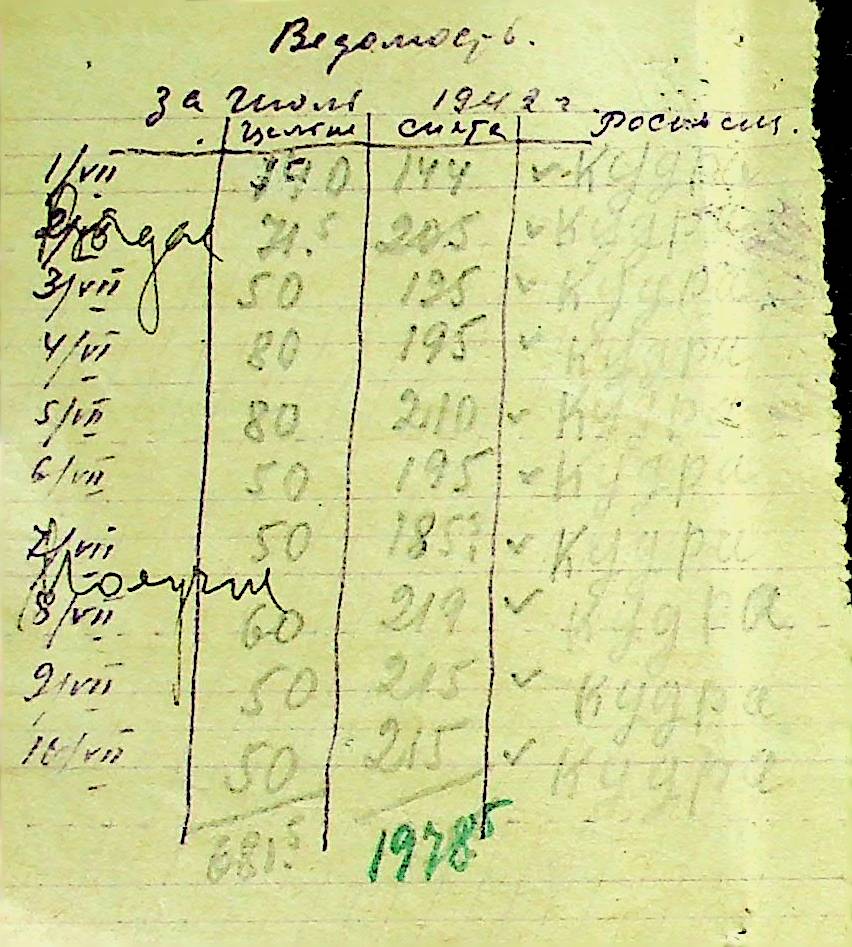 Ведомость.
за Июль 1942 г.
Цельне Снята Росписи.
1/VII 140 144 ✓ Кудра
2/VII 71.5 205 ✓ Кудра
3/VII 50 195 ✓ Кудра
4/VI 80 195 ✓ Кудра
5/VII 80 210 ✓ Кудра
6/VII 50 195 ✓ Кудра
7/VII 50 185⁵ ✓ Кудра
Получил
8/VII 60 219 ✓ Кудра
9/VII 50 215 ✓ Кудра
10/VII 50 215 ✓ Кудра
681.5 1978⁵